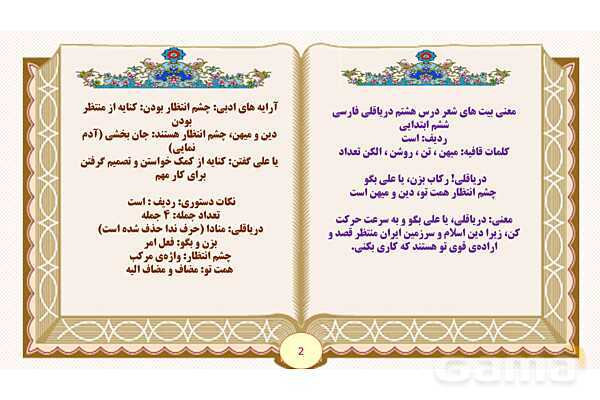 معنی بیت های شعر درس هشتم دریاقلی فارسی
ششم ابتدایی
ردیف: است
کلمات قافیه: میهن ، تن ، روشن ، الکن تعداد
دریاقلی! رکاب بزن، یا علی بگو
چشم انتظار همت تو، دین و میهن است
معنی: دریاقلی، یا علی بگو و به سرعت حرکت
کن، زیرا دین اسلام و سرزمین ایران منتظر قصد و
اراده‌ی قوی تو هستند که کاری بکنی.
آرایه های ادبی: چشم انتظار بودن: کنایه از منتظر
بودن
دین و میهن، چشم انتظار هستند: جان بخشی (آدم
نمایی)
یا علی گفتن: کنایه از کمک خواستن و تصمیم گرفتن
برای کار مهم
نکات دستوری: ردیف : است
تعداد جمله: ۴ جمله
دریاقلی: منادا (حرف ندا حذف شده است)
بزن و بگو: فعل امر
چشم انتظار: واژه‌ی مرکب
همت تو: مضاف و مضاف الیه
2
Gama